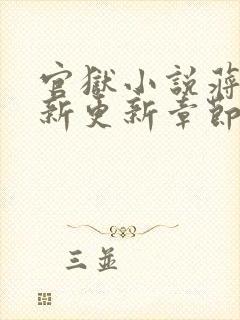 官獄小說蔣
新更新章節
三並